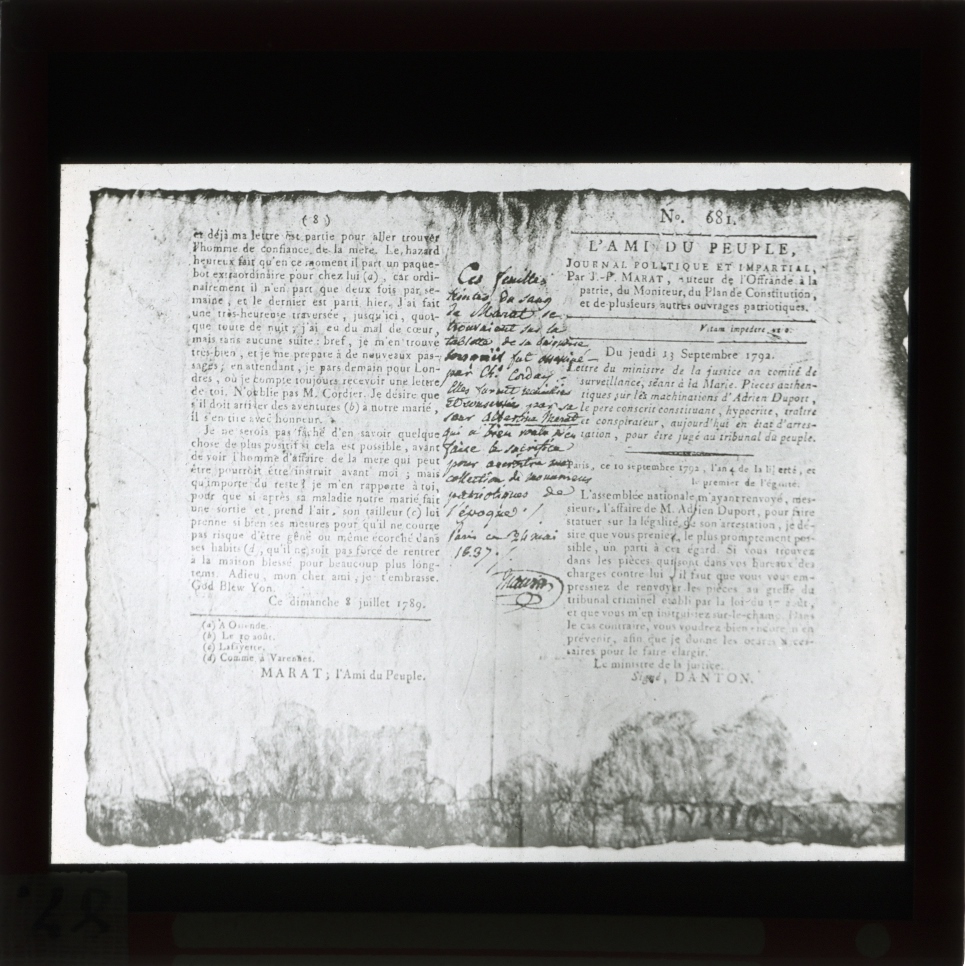 ( 8 )
et déjà ma lettre est partie pour aller trouver
l'homme de confiance de la mère. Le hazard
heureux fait qu'en ce moment il part un paque-
bot extraordinaire pour chez lui (a), car ordi-
nairement il n'en part que deux fois par se-
maine, et le dernier est parti hier. J'ai fait
une très-heureuse traversée, jusqu'ici, quoi-
que toute de nuit; j'ai eu du mal de cœur,
mais sans aucune suite: bref, je m'en trouve
très-bien, et je me prépare à de nouveaux pas-
sages; en attendant, je pars demain pour Lon-
dres, où je compte toujours recevoir une lettre
de toi. N'oublie pas M. Cordier. Je désire que
s'il doit arriver des aventures (b) à notre marié,
il s'en tire avec honneur.
Je ne serois pas fâché d'en savoir quelque
chose de plus positif si cela est possible, avant
de voir l'homme d'affaire de la mere qui peut
être pourroit être instruit avant moi; mais
qu'importe du reste! je m'en rapporte à toi,
pour que si après sa maladie notre marié fait
une sortie et prend l'air, son tailleur (c) lui
prenne si bien ses mesures pour qu'il ne courre
pas risque d'être gêné ou même écorché dans
ses habits (d), qu'il ne soit pas forcé de rentrer
à la maison blessé pour beaucoup plus long-
tems. Adieu, mon cher ami, je t'embrasse.
God Blew Yon.
Ce dimanche 8 juillet 1789.
(a) A Ostende.
(b) Le 10 août.
(c) Lafayette.
(d) Comme à Varennes.
MARAT; l'Ami du Peuple.
Ces feuilles
teintes du sang
de Marat se
trouvaient sur la
tablette de sa baignoire
lorsqu'il fut assassiné
par Ch. Corday.
Elles furent recueillies
et conservées par sa
sœur Albertine Marat
qui a bien voulu m'en
faire le sacrifice
pour accroître ma
collection de monumens
patriotiques de
l'époque!
Paris ce 24 mai
1837.
Maurin
No. 681.
L'AMI DU PEUPLE,
JOURNAL POLITIQUE ET IMPARTIAL,
Par J.-P. MARAT, auteur de l'Offrande à la
patrie, du Moniteur, du Plan de Constitution,
et de plusieurs autres ouvrages patriotiques.
Vitam impedere vero.
Du jeudi 13 Septembre 1792.
Lettre du ministre de la justice au comité de
surveillance, séant à la Marie. Pieces authen-
tiques sur les machinations d'Adrien Duport,
le pere conscrit constituant, hypocrite, traître
et conspirateur, aujourd'hui en état d'arres-
tation, pour être jugé au tribunal du peuple.
Paris, ce 10 septembre 1792, l'an 4 de la liberté, et
le premier de l'égalité.
L'assemblée nationale m'ayant renvoyé, mes-
sieurs, l'affaire de M. Adrien Duport, pour faire
statuer sur la légalité de son arrestation, je dé-
sire que vous preniez, le plus promptement pos-
sible, un parti à cet égard. Si vous trouvez
dans les pièces qui sont dans vos bureaux des
charges contre lui, il faut que vous vous em-
pressiez de renvoyer les pièces au greffe du
tribunal criminel établi par la loi du 17 août,
et que vous m'en instruisiez sur-le-champ. Dans
le cas contraire, vous voudrez bien encore m'en
prévenir, afin que je donne les ordres néces-
saires pour le faire élargir.
Le ministre de la justice.
Signé, DANTON.
84.